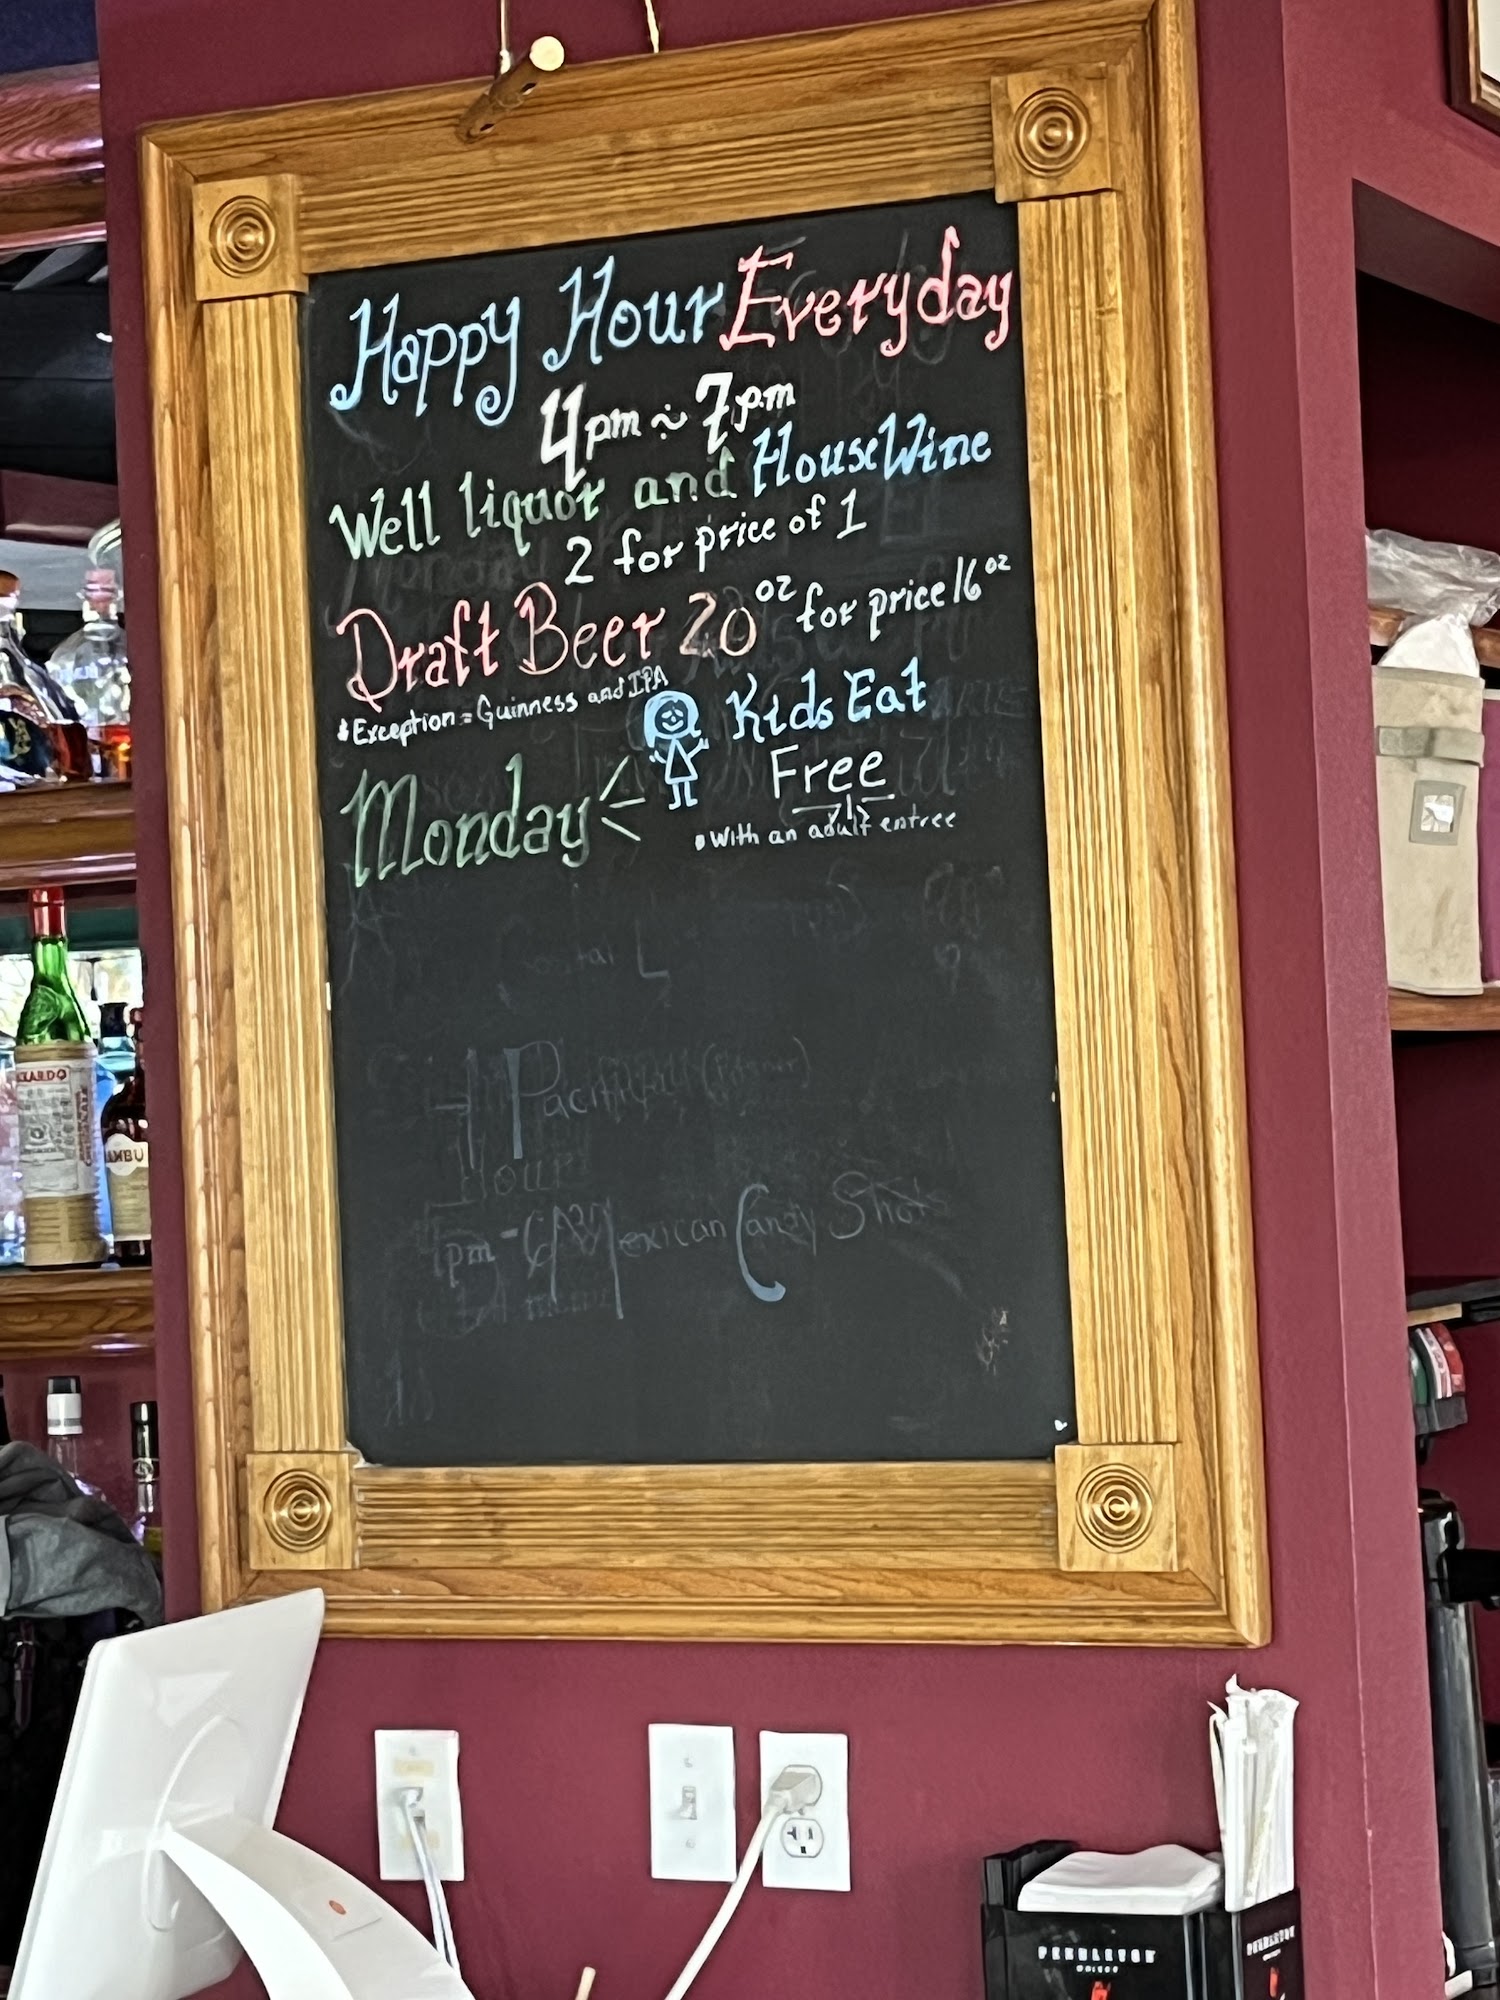 Happy Hour Everyday
4pm ~ 7pm
Well liquor and House Wine
2 for price of 1
Draft Beer 20 oz for price 16 oz
*Exception = Guinness and IPA
Monday
Kids Eat
Free
*With an adult entree
Pacifi
Hour
7pm - Mexican Candy Shots
PENDLETON